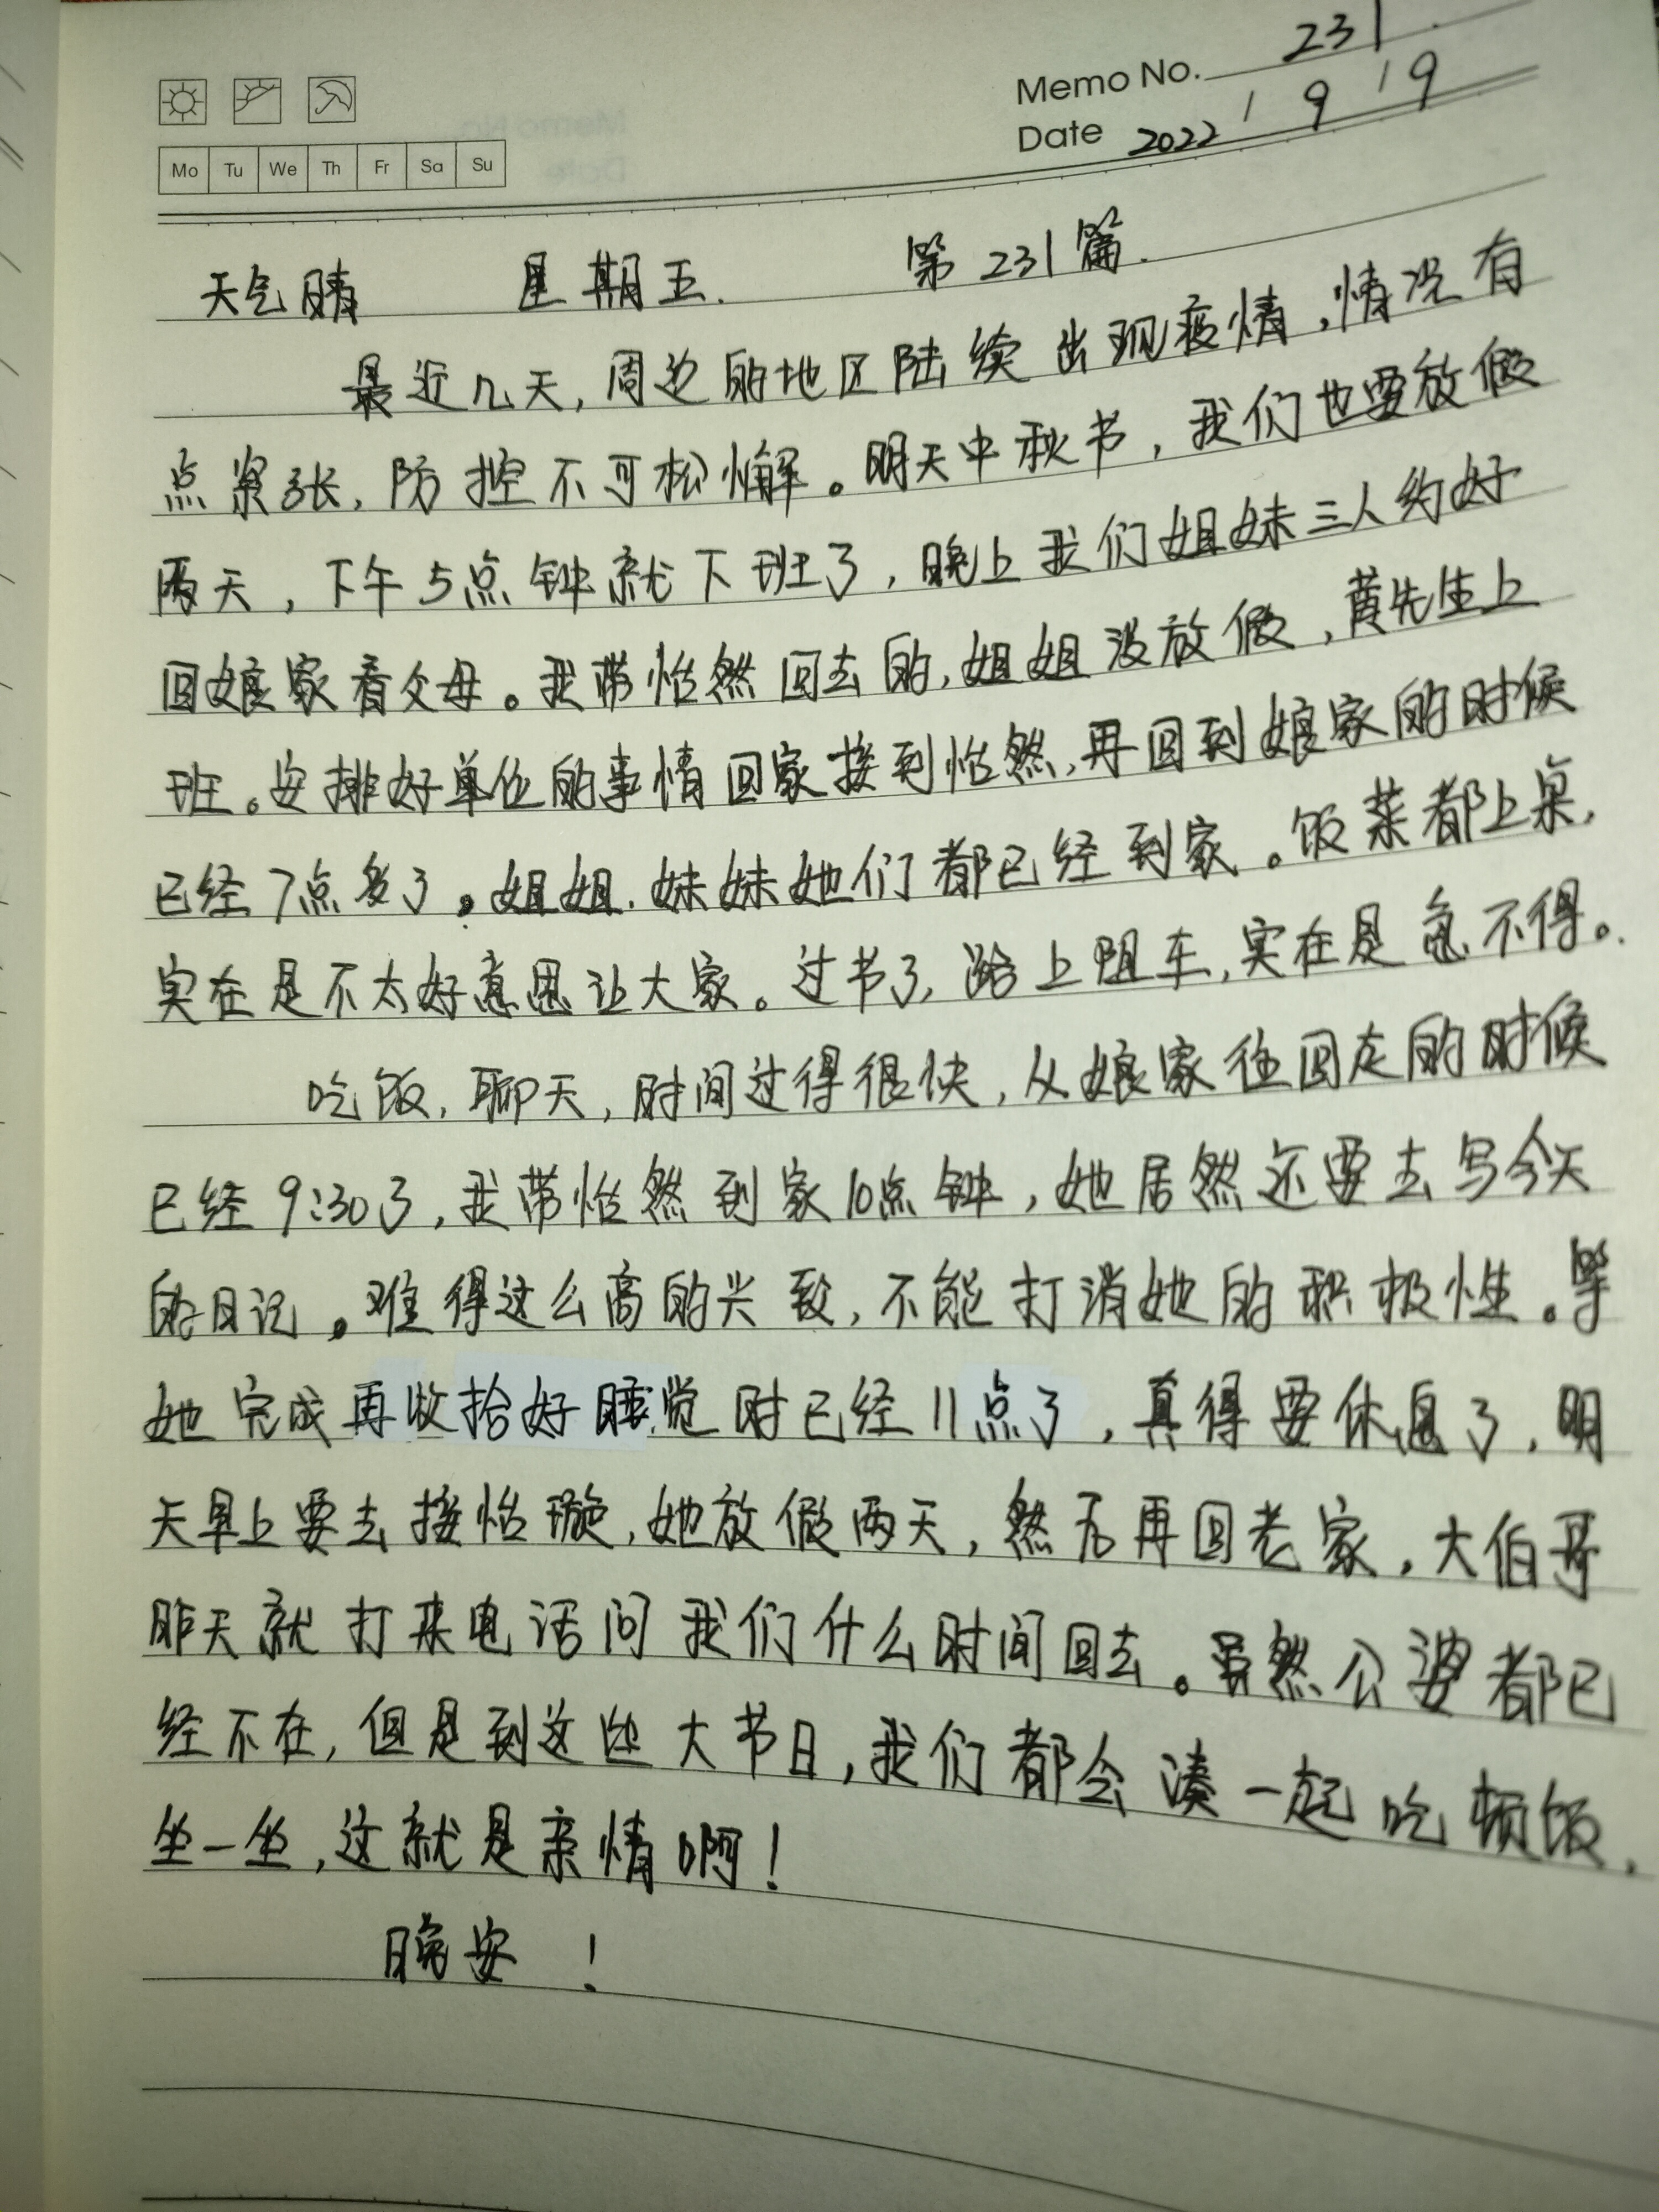 Memo No. 231
Date 2022 / 9 / 9
Mo Tu We Th Fr Sa Su
天气晴 星期五. 第231篇.
最近几天,周边的地区陆续出现疫情,情况有
点紧张,防控不可松懈。明天中秋节,我们也要放假
两天,下午5点钟就下班了,晚上我们姐妹三人约好
回娘家看父母。我带怡然回去的,姐姐没放假,黄先生上
班。安排好单位的事情回家接到怡然,再回到娘家的时候
已经7点多了。姐姐.妹妹她们都已经到家。饭菜都上桌,
实在是不太好意思让大家。过节了,路上阻车,实在是急不得。
吃饭,聊天,时间过得很快,从娘家往回走的时候
已经9:30了,我带怡然到家10点钟,她居然还要去写今天
的日记。难得这么高的兴致,不能打消她的积极性。等
她完成再收拾好睡觉时已经11点了,真得要休息了,明
天早上要去接怡璇,她放假两天,然后再回老家,大伯哥
昨天就打来电话问我们什么时间回去。虽然公婆都已
经不在,但是到这些大节日,我们都会凑一起吃顿饭,
坐一坐,这就是亲情啊!
晚安!